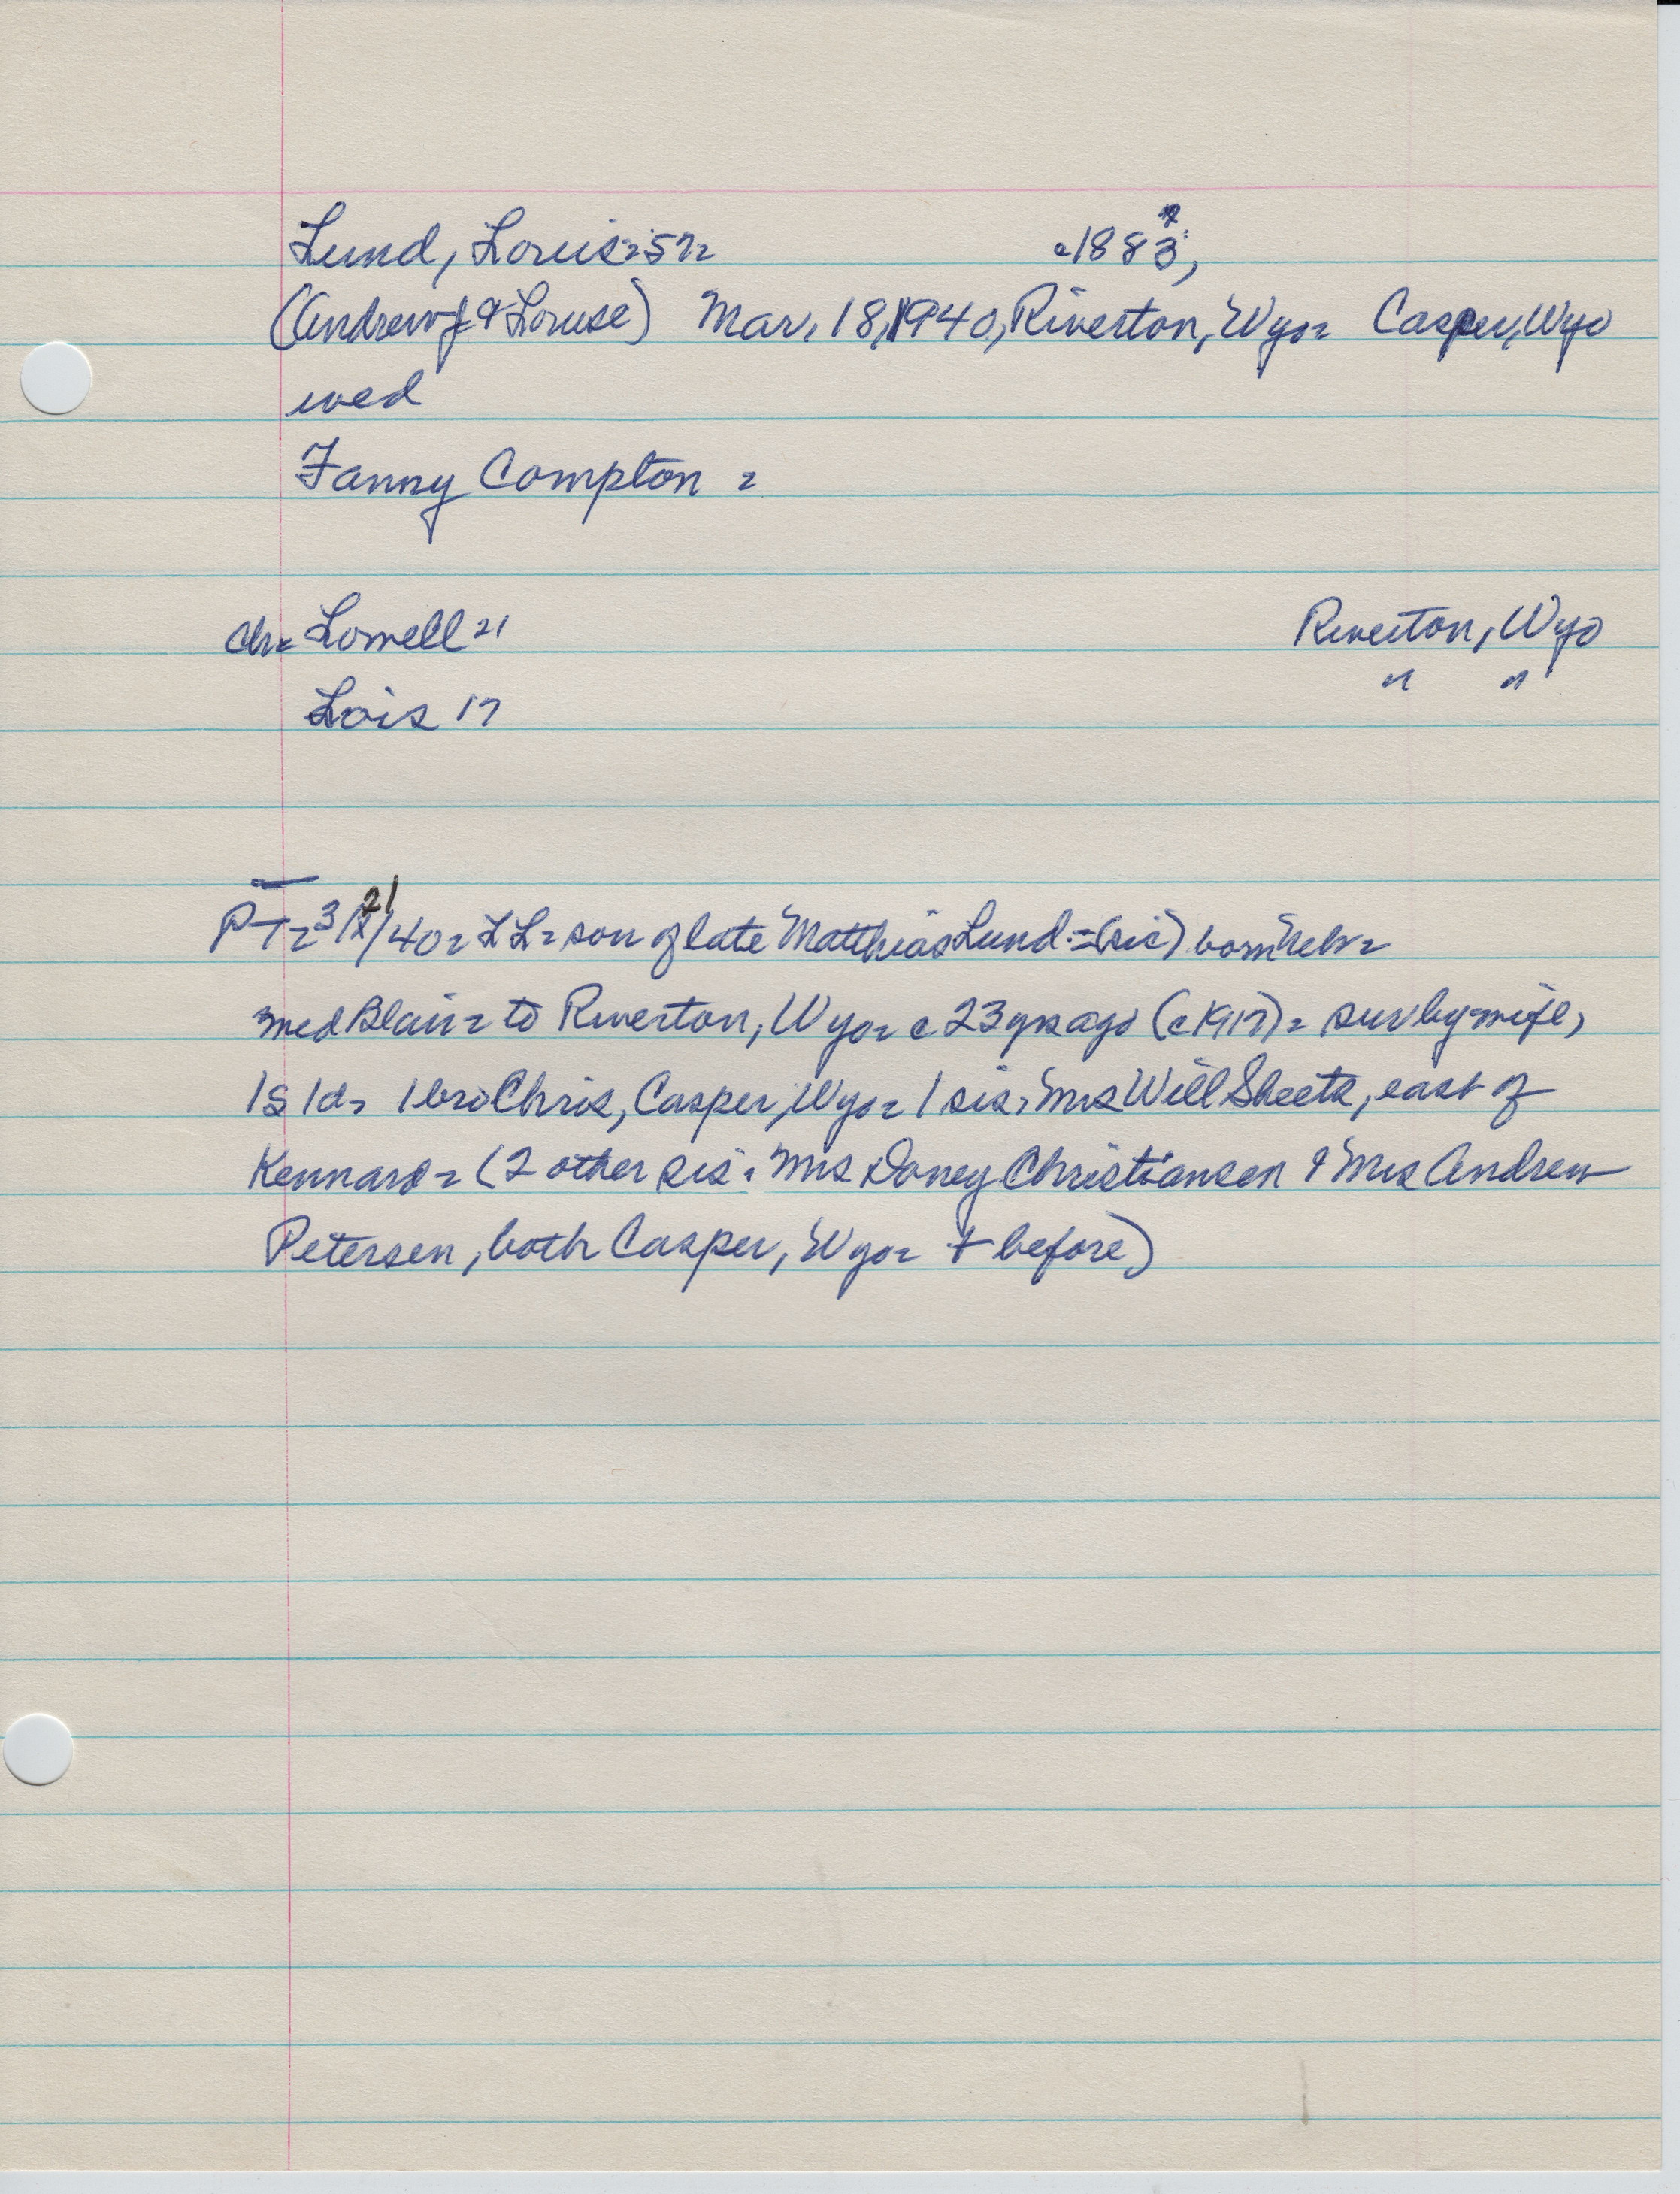 Lund, Louis = 57 = c1883,
(Andrew J & Louise) Mar. 18, 1940, Riverton, Wyo = Casper, Wyo
wed
Fanny Compton =
ch = Lowell 21 Riverton, Wyo
Lois 17 " "
PT = 3/21/40 = LL = son of late Matthias Lund = (sic) born Neb =
med Blair = to Riverton, Wyo = c 23 yrs ago (c1917) = sur by wife,
1s 1d, 1 bro Chris, Casper, Wyo = 1 sis, Mrs Will Sheets, east of
Kennard = (2 other sis, Mrs Doney Christiansen & Mrs Andrew
Petersen, both Casper, Wyo = + before)